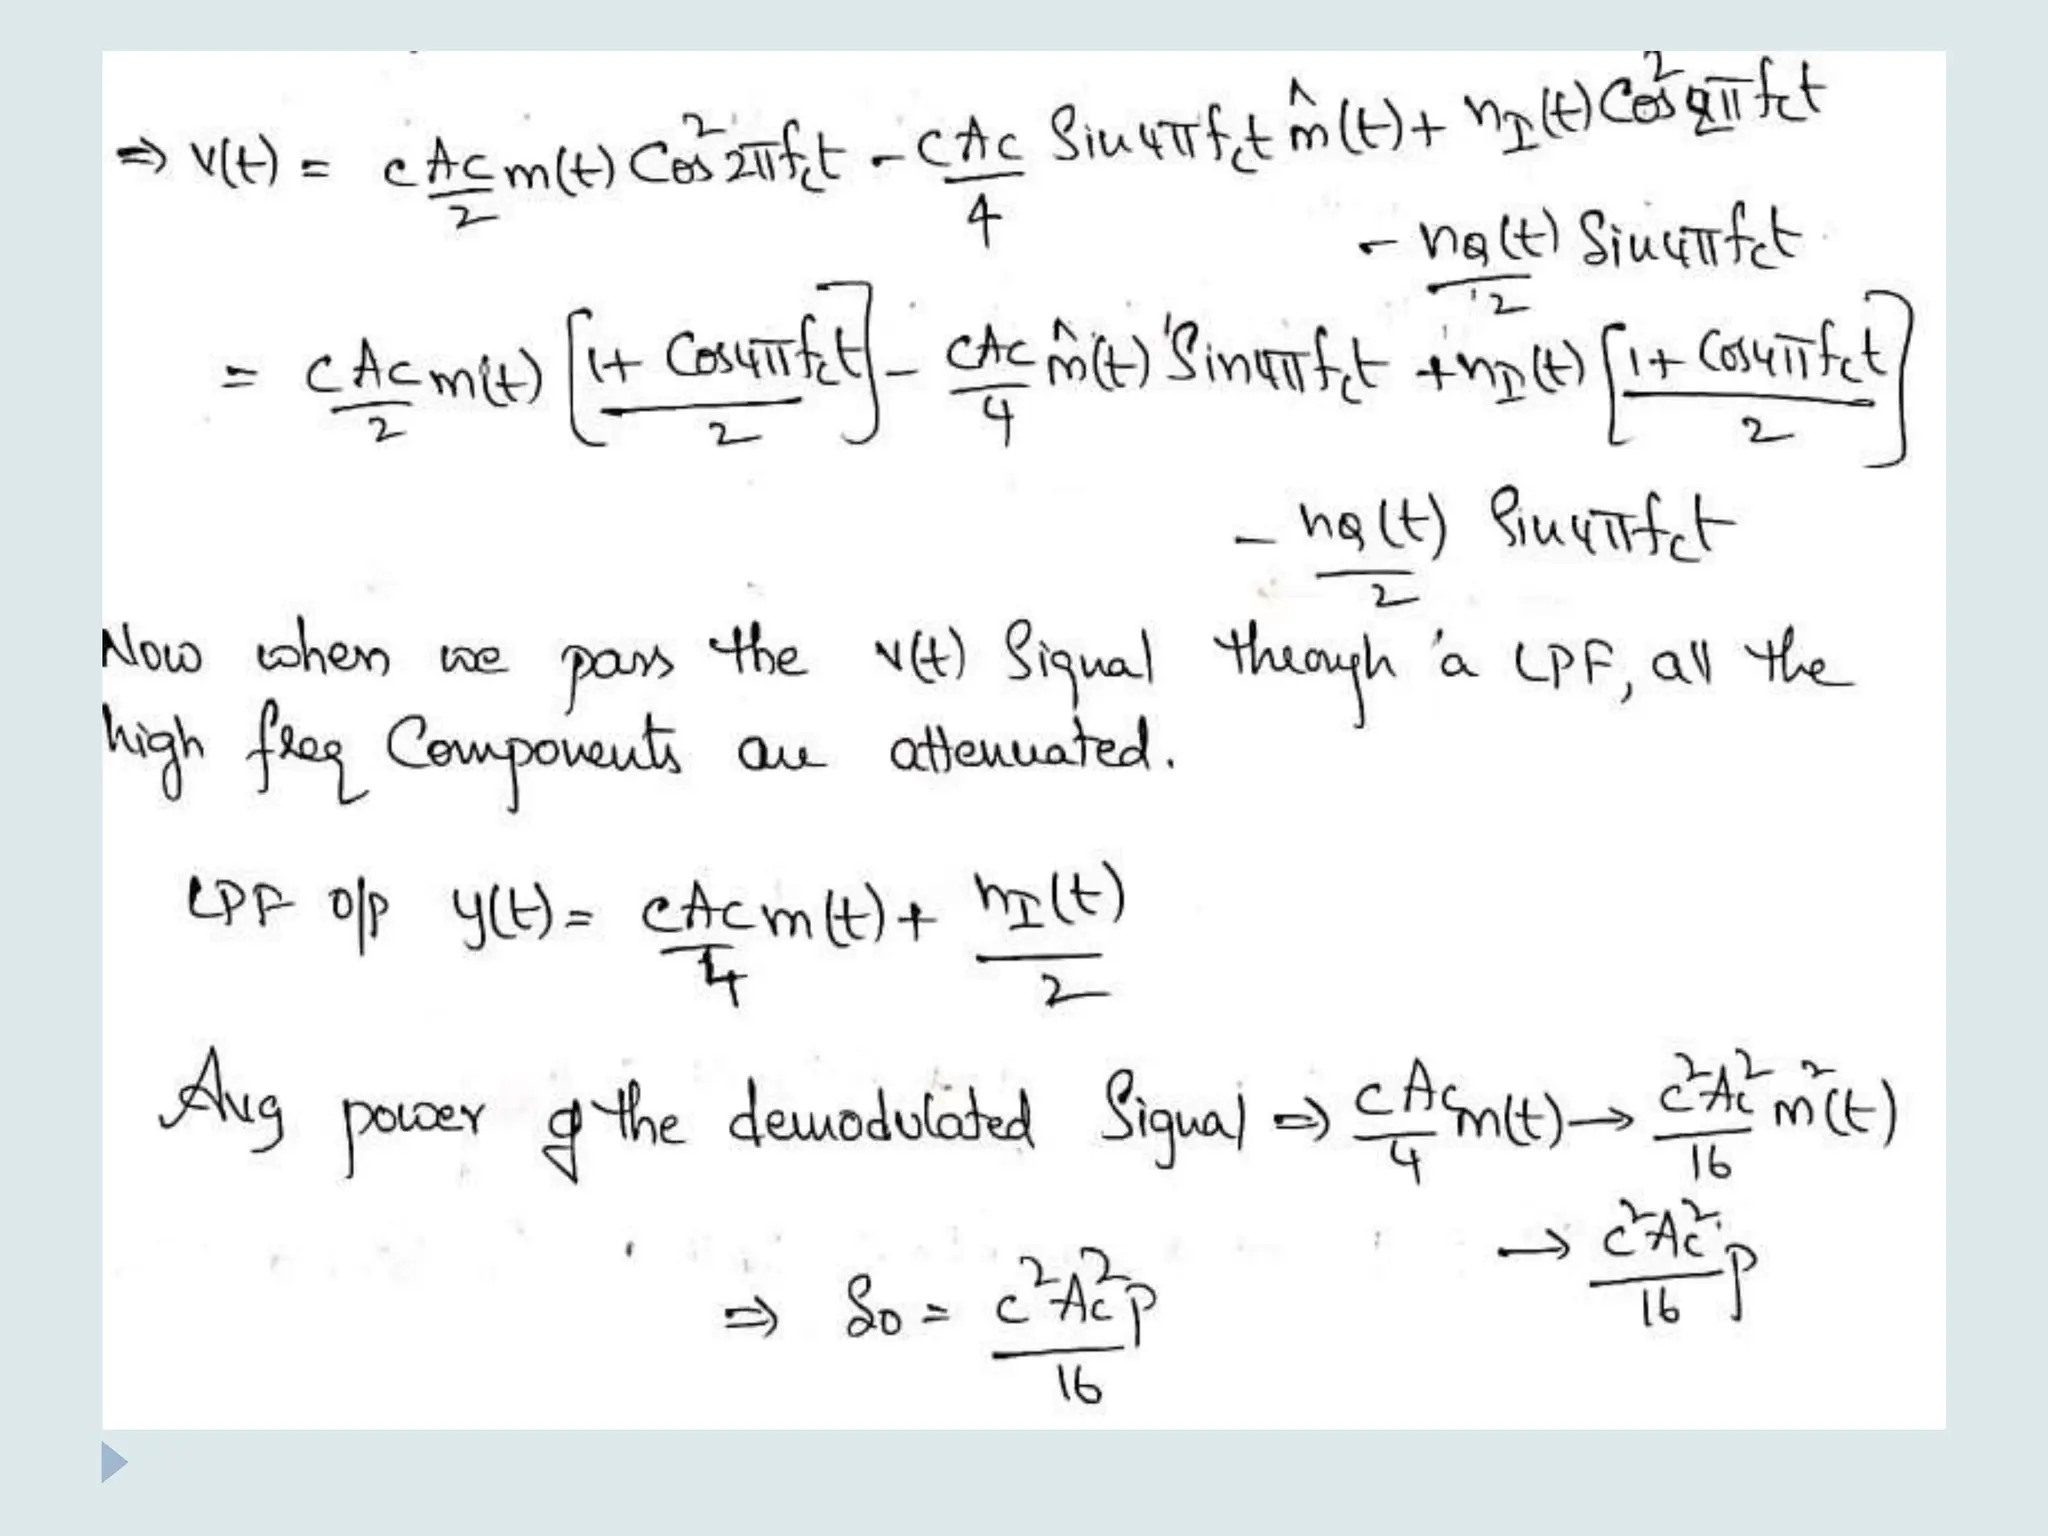 ⇒ v(t) = cAc/2 m(t) Cos²2πfct - cAc/4 Sin4πfct m̂(t) + nI(t) Cos²2πfct
- nQ(t)/2 Sin4πfct
= cAc/2 m(t) [1 + Cos4πfct / 2] - cAc/4 m̂(t) Sin4πfct + nI(t) [1 + Cos4πfct / 2]
- nQ(t)/2 Sin4πfct
Now when we pass the v(t) Signal through a LPF, all the
high freq Components are attenuated.
LPF o/p y(t) = cAc/4 m(t) + nI(t)/2
Avg power of the demodulated Signal ⇒ cAc/4 m(t) → c²Ac²/16 m²(t)
→ c²Ac²/16 p
⇒ So = c²Ac²p/16